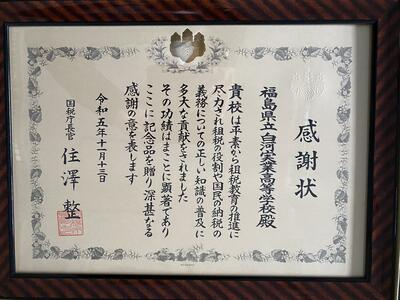 感謝状
福島県立白河実業高等学校殿
貴校は平素から租税教育の推進に
尽力され租税の役割や国民の納税の
義務についての正しい知識の普及に
多大な貢献をされました
その功績はまことに顕著であり
ここに記念品を贈り深甚なる
感謝の意を表します
令和五年十一月十三日
国税庁長官
住澤 整